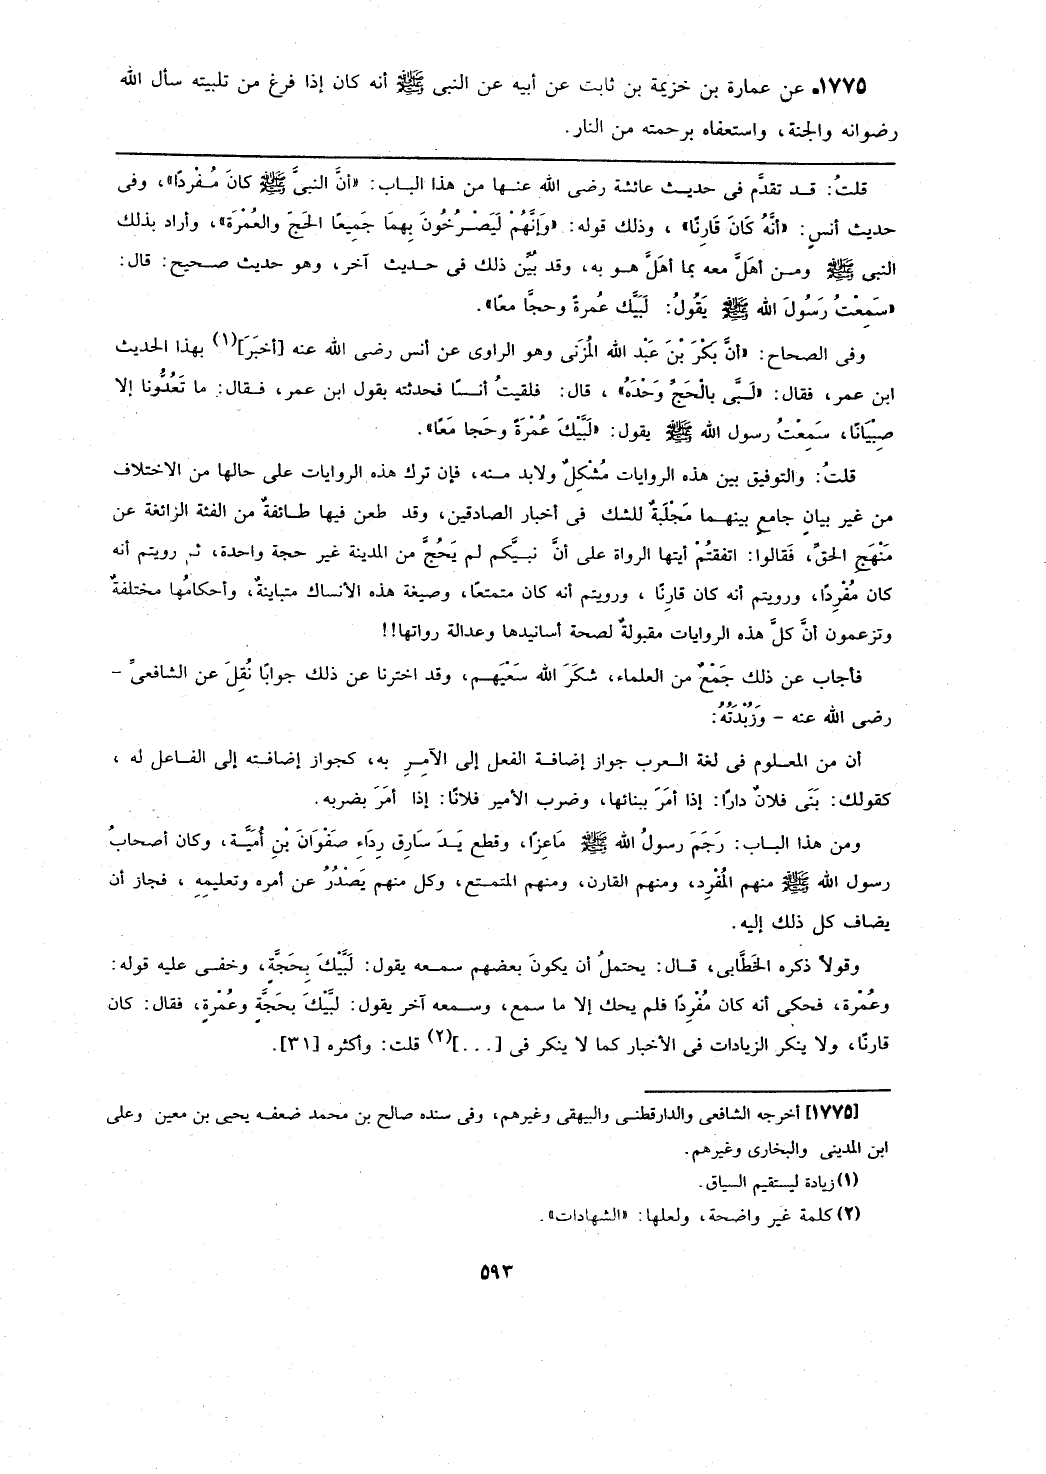 ١٧٧٥ـ عن عمارة بن خزيمة بن ثابت عن أبيه عن النبى ﷺ أنه كان إذا فرغ من تلبيته سأل الله
رضوانه والجنة، واستعفاه برحمته من النار.
قلتُ: قـد تقدَّم فى حديـث عائشة رضى الله عنـها من هذا البـاب: «أنَّ النبىَّ ﷺ كانَ مُـفْردًا»، وفى
حديث أنسٍ: «أنَّهُ كَانَ قَارِنًا» ، وذلك قوله: «وَإِنَّهُمْ لَيَصْـرُخُونَ بِهِما جَمِيعًا الحَجَ والعُمْرَة»، وأراد بذلك
النبى ﷺ ومـن أهَلَّ معه بما أهَلَّ هـو به، وقد بُيِّن ذلك فى حـديث آخر، وهو حديث صـحيح: قال:
«سَمِعْتُ رَسُولَ الله ﷺ يَقُولُ: لَبَيَّك عُمرةً وحجًّا معًا».
وفى الصحاح: «أنَّ بَكْرَ بْنَ عَبْد الله المُزَنى وهو الراوى عن أنس رضى الله عنه [أخبَرَ](١) بهذا الحديث
ابن عمر، فقال: «لَـبَّى بالْحَجِّ وَحْدَهُ» ، قال: فلقيتُ أنـسًا فحدثته بقول ابن عمر، فـقال: ما تَعُدُّونا إلا
صِبْيَانًا، سَمِعْتُ رسول الله ﷺ يقول: «لَبَّيْكَ عُمْرَةً وحَجا مَعًا».
قلتُ: والتوفيق بين هذه الروايات مُشْكِلٌ ولابد مـنه، فإن ترك هذه الروايات على حالها من الاختلاف
من غير بيانٍ جامعٍ بينهـما مَجْلَبَةٌ للشك فى أخبار الصادقين، وقد طعن فيها طـائفةٌ من الفئة الزائغة عن
مَنْهَجِ الحقِّ، فَقالوا: اتفقتُمْ أيتها الرواة على أنَّ نبـيَّكم لم يَحُجَّ من المدينة غير حجة واحدة، ثم رويتم أنه
كان مُفْرِدًا، ورويتم أنه كان قارنًا ، ورويتم أنه كان متمتعًا، وصيغة هذه الأنساك متباينةٌ، وأحكامُها مختلفةٌ
وتزعمون أنَّ كلَّ هذه الروايات مقبولةٌ لصحة أسانيدها وعدالة رواتها!!
فأجاب عن ذلك جَمْعٌ من العلماء، شكَرَ الله سَعْيَهـم، وقد اخترنا عن ذلك جوابًا نُقِلَ عن الشافعىِّ -
رضى الله عنه - وَزُبْدَتُهُ:
أن من المعـلوم فى لغة العـرب جواز إضافـة الفعل إلى الآمِـرِ به، كجواز إضافـته إلى الفـاعل له ،
كقولك: بَنَى فلانٌ دارًا: إذا أمَرَ ببنائها، وضرب الأمير فلانًا: إذا أمَرَ بضربه.
ومن هذا البـاب: رَجَمَ رسولُ الله ﷺ مَاعِزًا، وقطع يَـدَ سَارِق رِدَاءِ صَفْوَانَ بْنِ أُمَيَّـة، وكان أصحابُ
رسول الله ﷺ منهم المُفْرِد، ومنهم القارن، ومنهم المتمـتع، وكل منهم يَصْدُرُ عن أمره وتعليمِهِ ، فجاز أن
يضاف كل ذلك إليه.
وقولاً ذكره الخَطَّابى، قـال: يحتملُ أن يكونَ بعضهم سمـعه يقول: لَبَّيْكَ بِحَجَّةٍ، وخفـى عليه قوله:
وعُمْرة، فحكى أنه كان مُفْرِدًا فلم يحك إلا ما سمع، وسـمعه آخر يقول: لبَّيْكَ بحَجَّةٍ وعُمْرةٍ، فقال: كان
قارنًا، ولا ينكر الزيادات فى الأخبار كما لا ينكر فى [...](٢) قلت: وأكثره [٣١].
[١٧٧٥] أخرجه الشافعى والدارقطنـى والبيهقى وغيرهم، وفى سنده صالح بن محمد ضعفـه يحيى بن معين وعلى
ابن المدينى والبخارى وغيرهم.
(١) زيادة ليستقيم السياق.
(٢) كلمة غير واضحة، ولعلها: «الشهادات».
٥٩٣